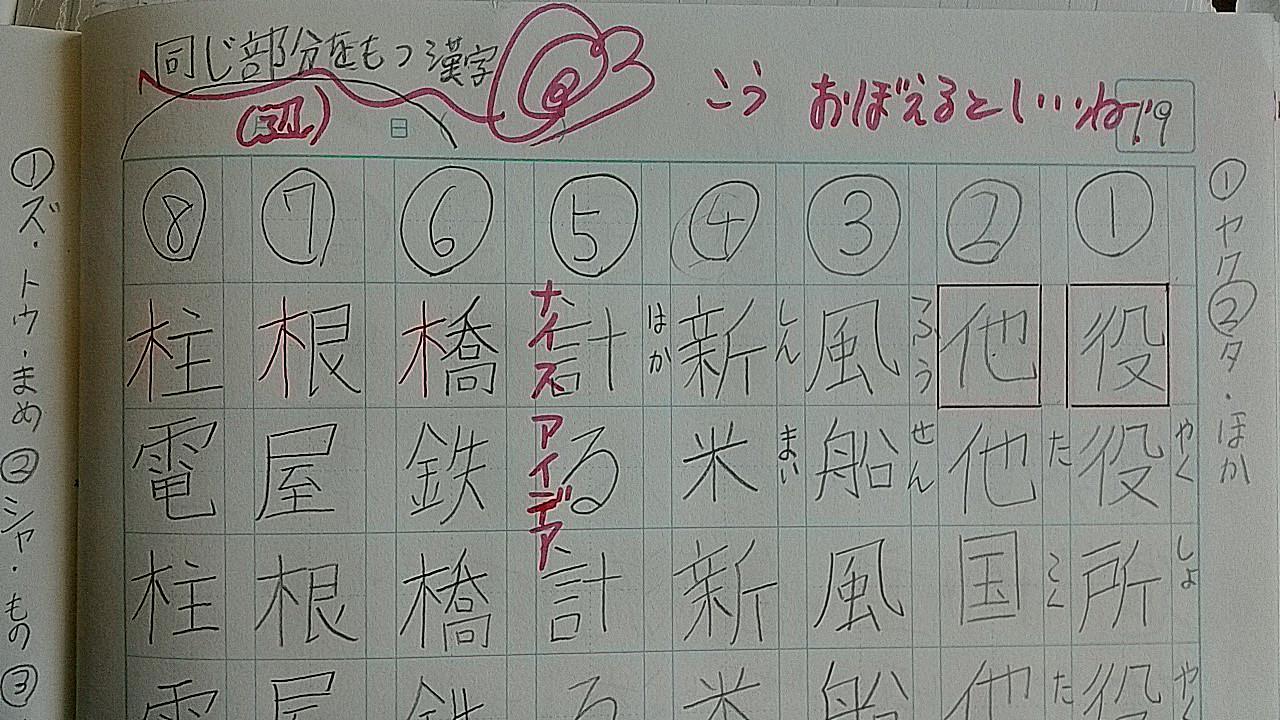 同じ部分をもつ漢字
こう おぼえるといいね
19
日
① ヤク ② タ・ほか
①
役 役 所 役
やく しょ やく
②
他 他 国 他
た こく た
③
風 船 風 船
ふう せん
④
新 米 新 米
しん まい
⑤
計 る 計 る
はか
ナイスアイデア
⑥
橋 鉄 橋 鉄
⑦
根 屋 根 屋
⑧
柱 電 柱 電
① ズ・トウ・まめ ② シャ・もの ③